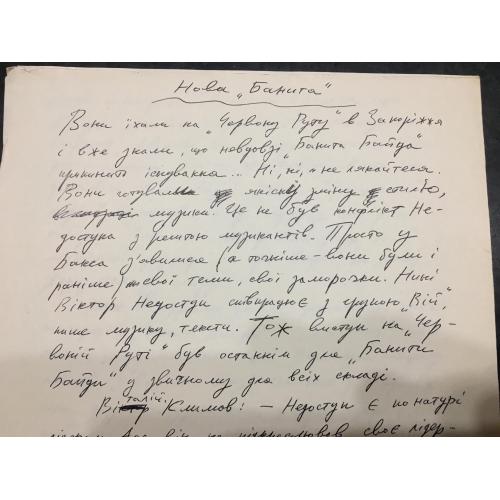 Нова „Банита"
Вони їхали на „Червону Руту" в Запоріжжя
і вже знали, що невдовзі „Банита Байда"
припинить існування... Ні, ні, не лякайтеся.
Вони готували якісну зміну стилю,
музики. Це не був конфлікт Не-
доступа з рештою музикантів. Просто у
Бакса з'явилися (а точніше – вони були і
раніше) свої теми, свої заморочки. Нині
Віктор Недоступ співпрацює з групою „Вій",
пише музику, тексти. Тож виступ на „Чер-
воній Руті" був останнім для „Банити
Байди" у звичному для всіх складі.
Віталій Климов: – Недоступ є по натурі
він не підкреслював своє лідер-